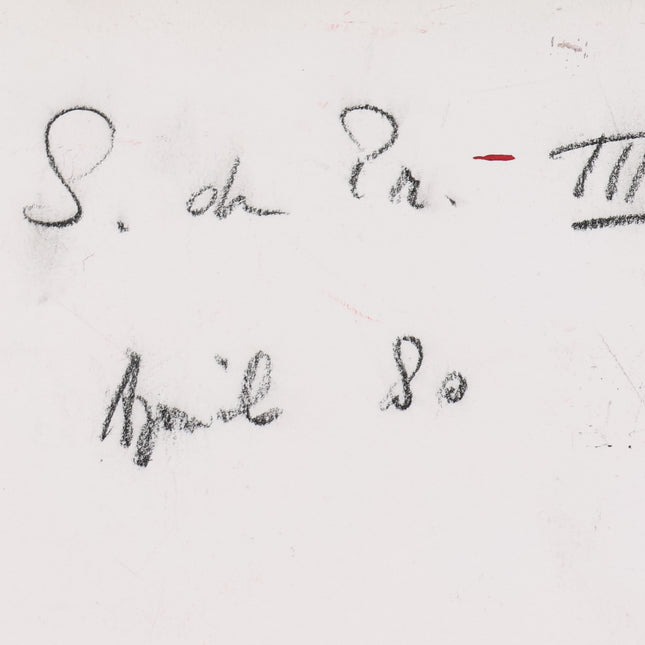 S. de Pr. - III
April 80